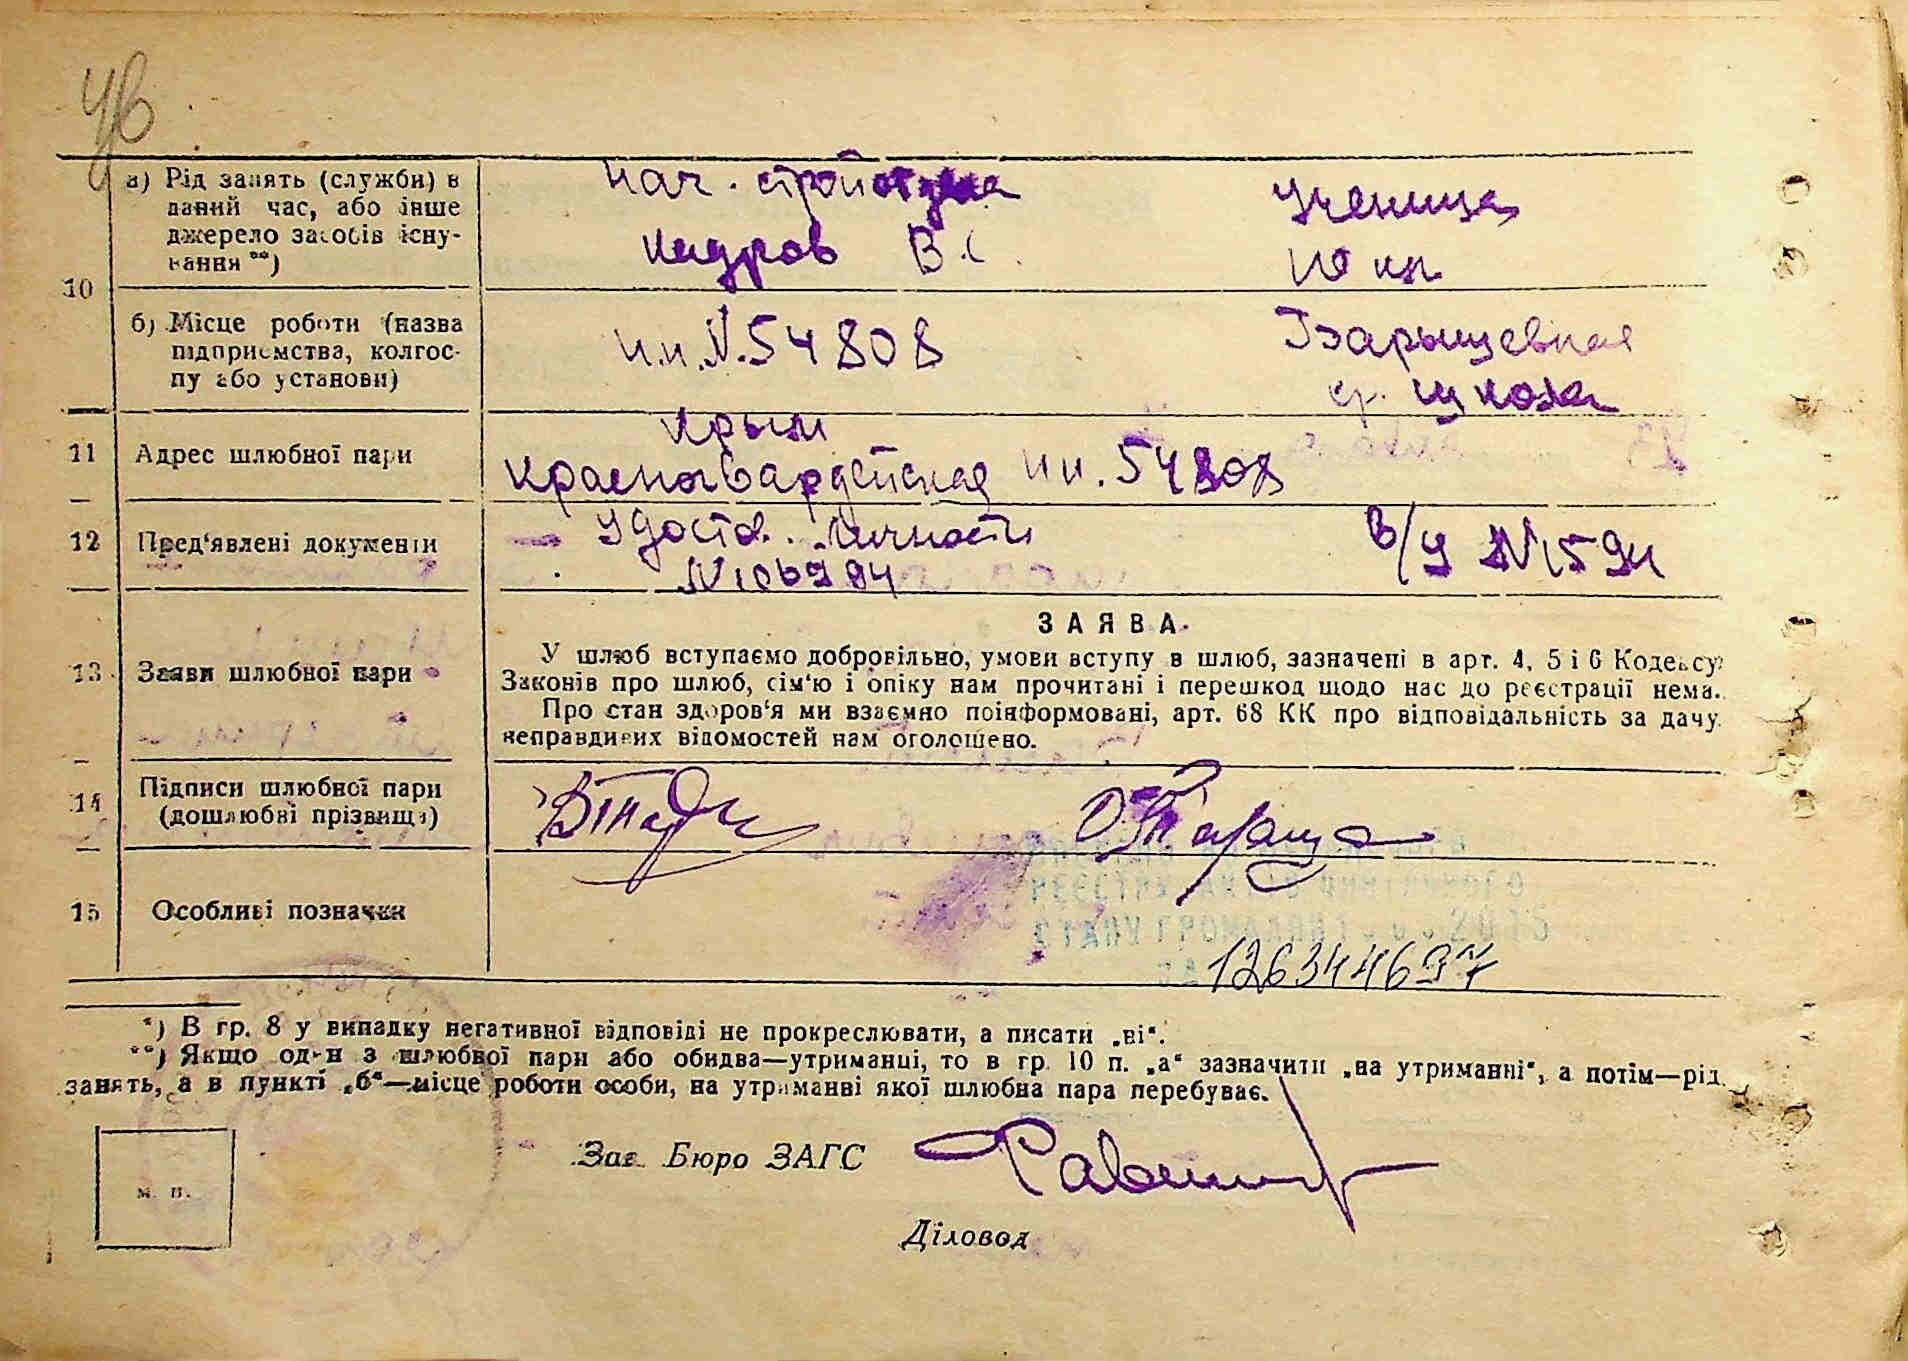 10
а) Рід занять (служби) в
даний час, або інше
джерело засобів існу-
вання **)
нач. стройотдела
кадров В.С.
Ученица
10 кл.
б) Місце роботи (назва
підприємства, колгос-
пу або установи)
п.п. N. 54808
Барышевская
ср. школа
11
Адрес шлюбної пари
Крым
Красногвардейская п.п. 54808
12
Пред‘явлені документи
Удостов. личности
в/у №
13
Заяви шлюбної пари
ЗАЯВА.
У шлюб вступаємо добровільно, умови вступу в шлюб, зазначені в арт. 4, 5 і 6 Кодексу
Законів про шлюб, сім‘ю і опіку нам прочитані і перешкод щодо нас до реєстрації нема.
Про стан здоров‘я ми взаємно поінформовані, арт. 68 КК про відповідальність за дачу
неправдивих відомостей нам оголошено.
14
Підписи шлюбної пари
(дошлюбні прізвища)
15
Особливі позначки
РЕЄСТРУ АКТІВ ЦИВІЛЬНОГО
СТАНУ ГРОМАДЯН 2015
ЗА 126344697
*) В гр. 8 у випадку негативної відповіді не прокреслювати, а писати „ні“.
**) Якщо один з шлюбної пари або обидва—утриманці, то в гр. 10 п. „а“ зазначити „на утриманні“, а потім—рід
занять, а в пункті „б“—місце роботи особи, на утриманні якої шлюбна пара перебуває.
м. п.
Зав. Бюро ЗАГС
Діловод